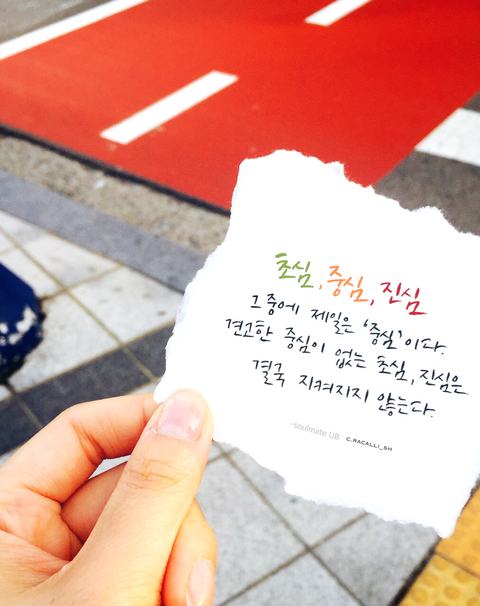 초심, 중심, 진심
그 중에 제일은 '중심'이다.
견고한 중심이 없는 초심, 진심은
결국 지켜지지 않는다.
-soulmate UB C.RACALLI_SH